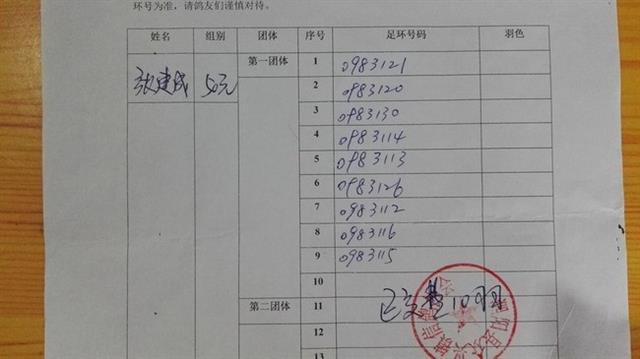 环号为准，请鸽友们谨慎对待。
姓名 组别 团体 序号 足环号码 羽色
张建成 50元 第一团体 1 0983121
2 0983120
3 0983130
4 0983114
5 0983113
6 0983126
7 0983112
8 0983116
9 0983115
10
第二团体 11 已交 10羽
12
13